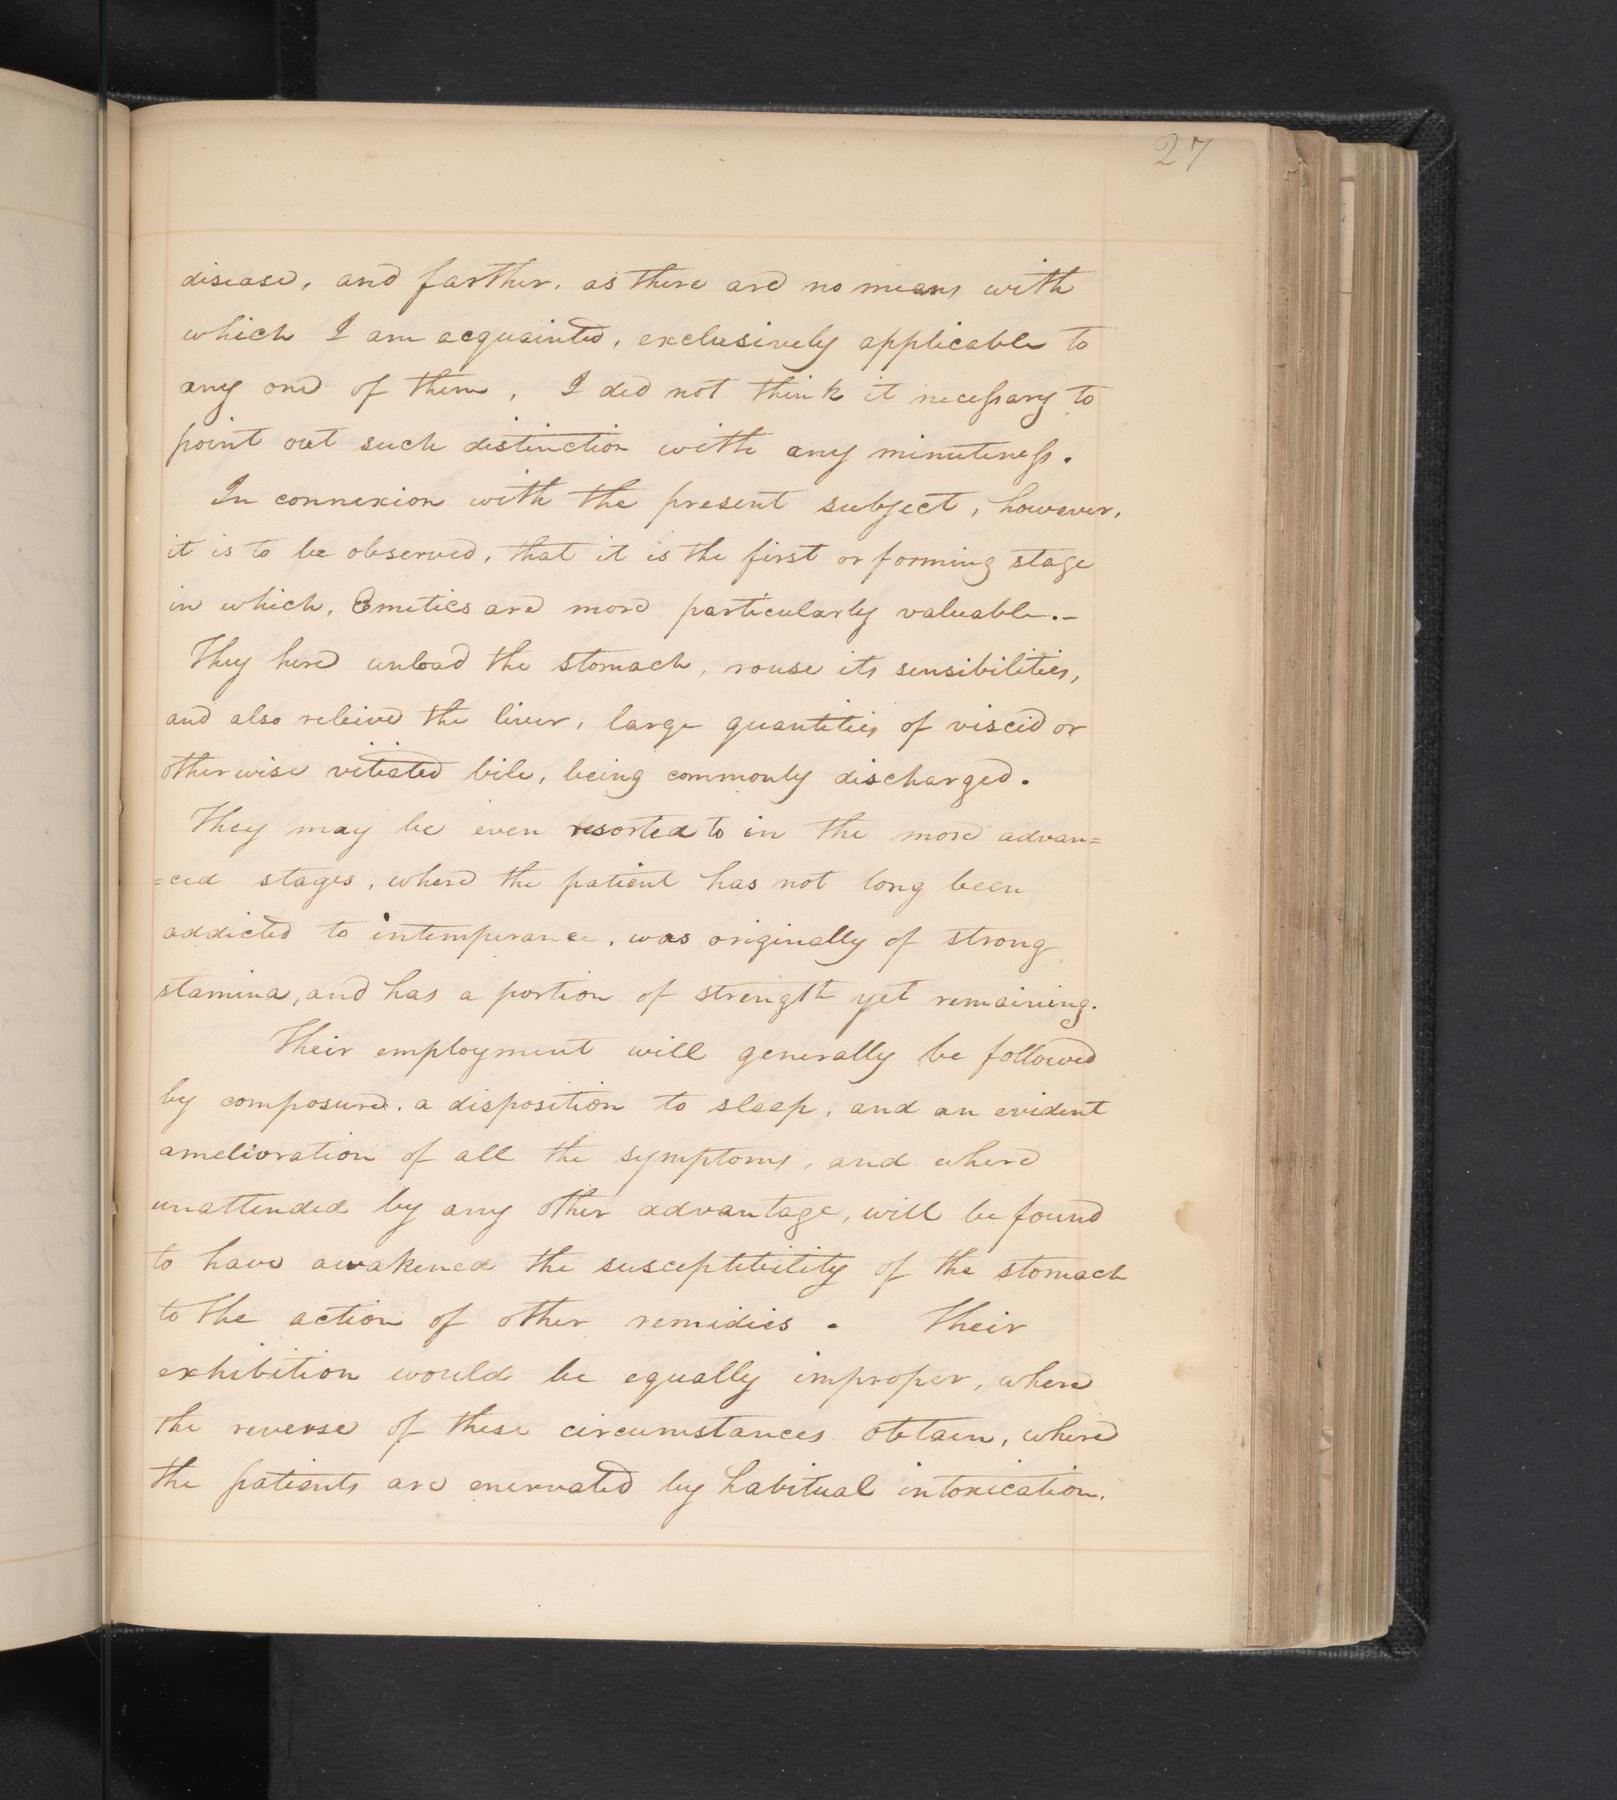 27
disease, and farther, as there are no means with
which I am acquainted, exclusively applicable to
any one of them, I did not think it necessary to
point out such distinction with any minuteness.
In connexion with the present subject, however,
it is to be observed, that it is the first or forming stage
in which, Emetics are more particularly valuable.-
They here unload the stomach, rouse its sensibilities,
and also releive the liver, large quantities of viscid or
otherwise vitiated bile, being commonly discharged.
They may be even resorted to in the more advan=
=ced stages, where the patient has not long been
addicted to intemperance, was originally of strong
stamina, and has a portion of strength yet remaining.
Their employment will generally be followed
by composure, a disposition to sleep, and an evident
amelioration of all the symptoms, and where
unattended by any other advantage, will be found
to have awakened the susceptibility of the stomach
to the action of other remidies. Their
exhibition would be equally improper, where
the reverse of these circumstances obtain, where
the patients are enervated by habitual intoxication.